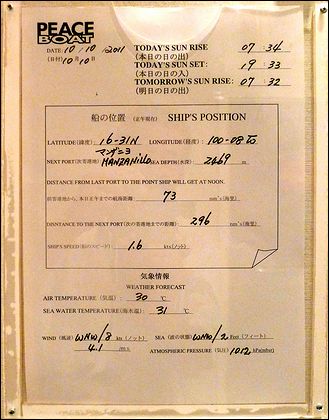 PEACE
BOAT
DATE: 10 / 10 / 2011
(日付) 10月10日
TODAY'S SUN RISE 07 : 34
(本日の日の出)
TODAY'S SUN SET: 19 : 33
(本日の日の入)
TOMORROW'S SUN RISE: 07 : 32
(明日の日の出)
船の位置 (正午現在) SHIP'S POSITION
LATITUDE(緯度): 16-31N LONGITUDE(経度): 100-08
マンサニヨ
NEXT PORT(次寄港地): MANZANILLO SEA DEPTH(水深): 2469 m
DISTANCE FROM LAST PORT TO THE POINT SHIP WILL GET AT NOON.
前寄港地から、本日正午までの航海距離: 73 nm's (海里)
DISNTANCE TO THE NEXT PORT(次の寄港地までの距離): 296 nm's (海里)
SHIP'S SPEED (船のスピード): 1.6 kts(ノット)
気象情報
WEATHER FORECAST
AIR TEMPERATURE (気温): 30 ℃
SEA WATER TEMPERATURE(海水温): 31 ℃
WIND (風速) WNW/8 kn (ノット) SEA (波の状態) WNW/2 Feet (フィート)
4.1 /m s ATMOSPHERIC PRESSURE (気圧) 1012 hPa(mber)